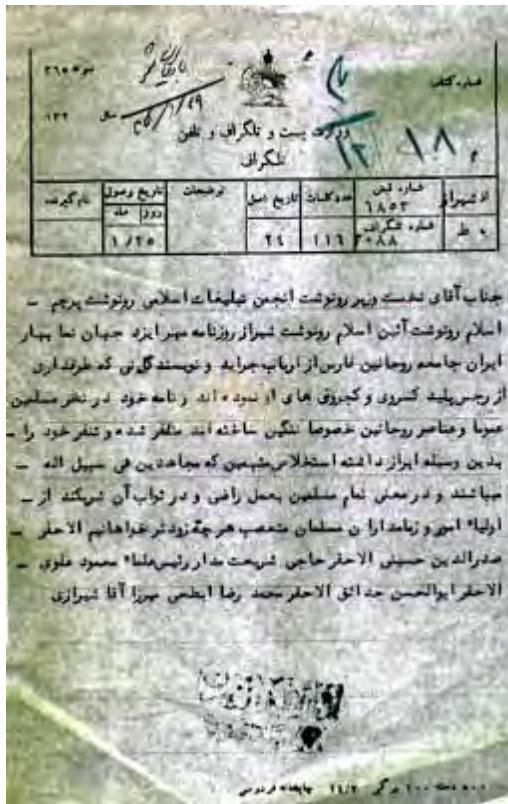 شماره کتاب
وزارت پست و تلگراف و تلفن
تلگراف
از شیراز
شماره قبض ۶۸۵۳
عدد کلمات
تاریخ اصل
توضیحات
تاریخ وصول
نام گیرنده
روز ماه
به ط
شماره تلگراف ۳۰۸۸
۱۱۶
۲۴
۱/۲۵
جناب آقای نخست وزیر رونوشت انجمن تبلیغات اسلامی رونوشت پرچم –
اسلام رونوشت آئین اسلام رونوشت شیراز روزنامه مهر ایزد جهان نما بهار
ایران جامعه روحانین فارس از ارباب جراید و نویسندگانی که طرفداری
از رجس پلید کسروی و کجروی های او نموده اند و نامه خود در نظر مسلمین
عموما و عناصر روحانین خصوصا ننگین ساخته اند متنفر شده و تنفر خود را –
بدین وسیله ابراز داشته استخلاص متهمین که مجاهدین فی سبیل اله –
میباشند و در معنی تمام مسلمین بعمل راضی و در ثواب آن شریکند از –
اولیاء امور و زمامداران مسلمان متعصب هر چه زودتر خواهانیم الاحقر –
صدرالدین حسینی الاحقر حاجی شریعت مدار رئیس علماء محمود علوی –
الاحقر ابوالحسن حدائق الاحقر محمد رضا ابطحی میرزا آقا شیرازی
چاپخانه فردوسی